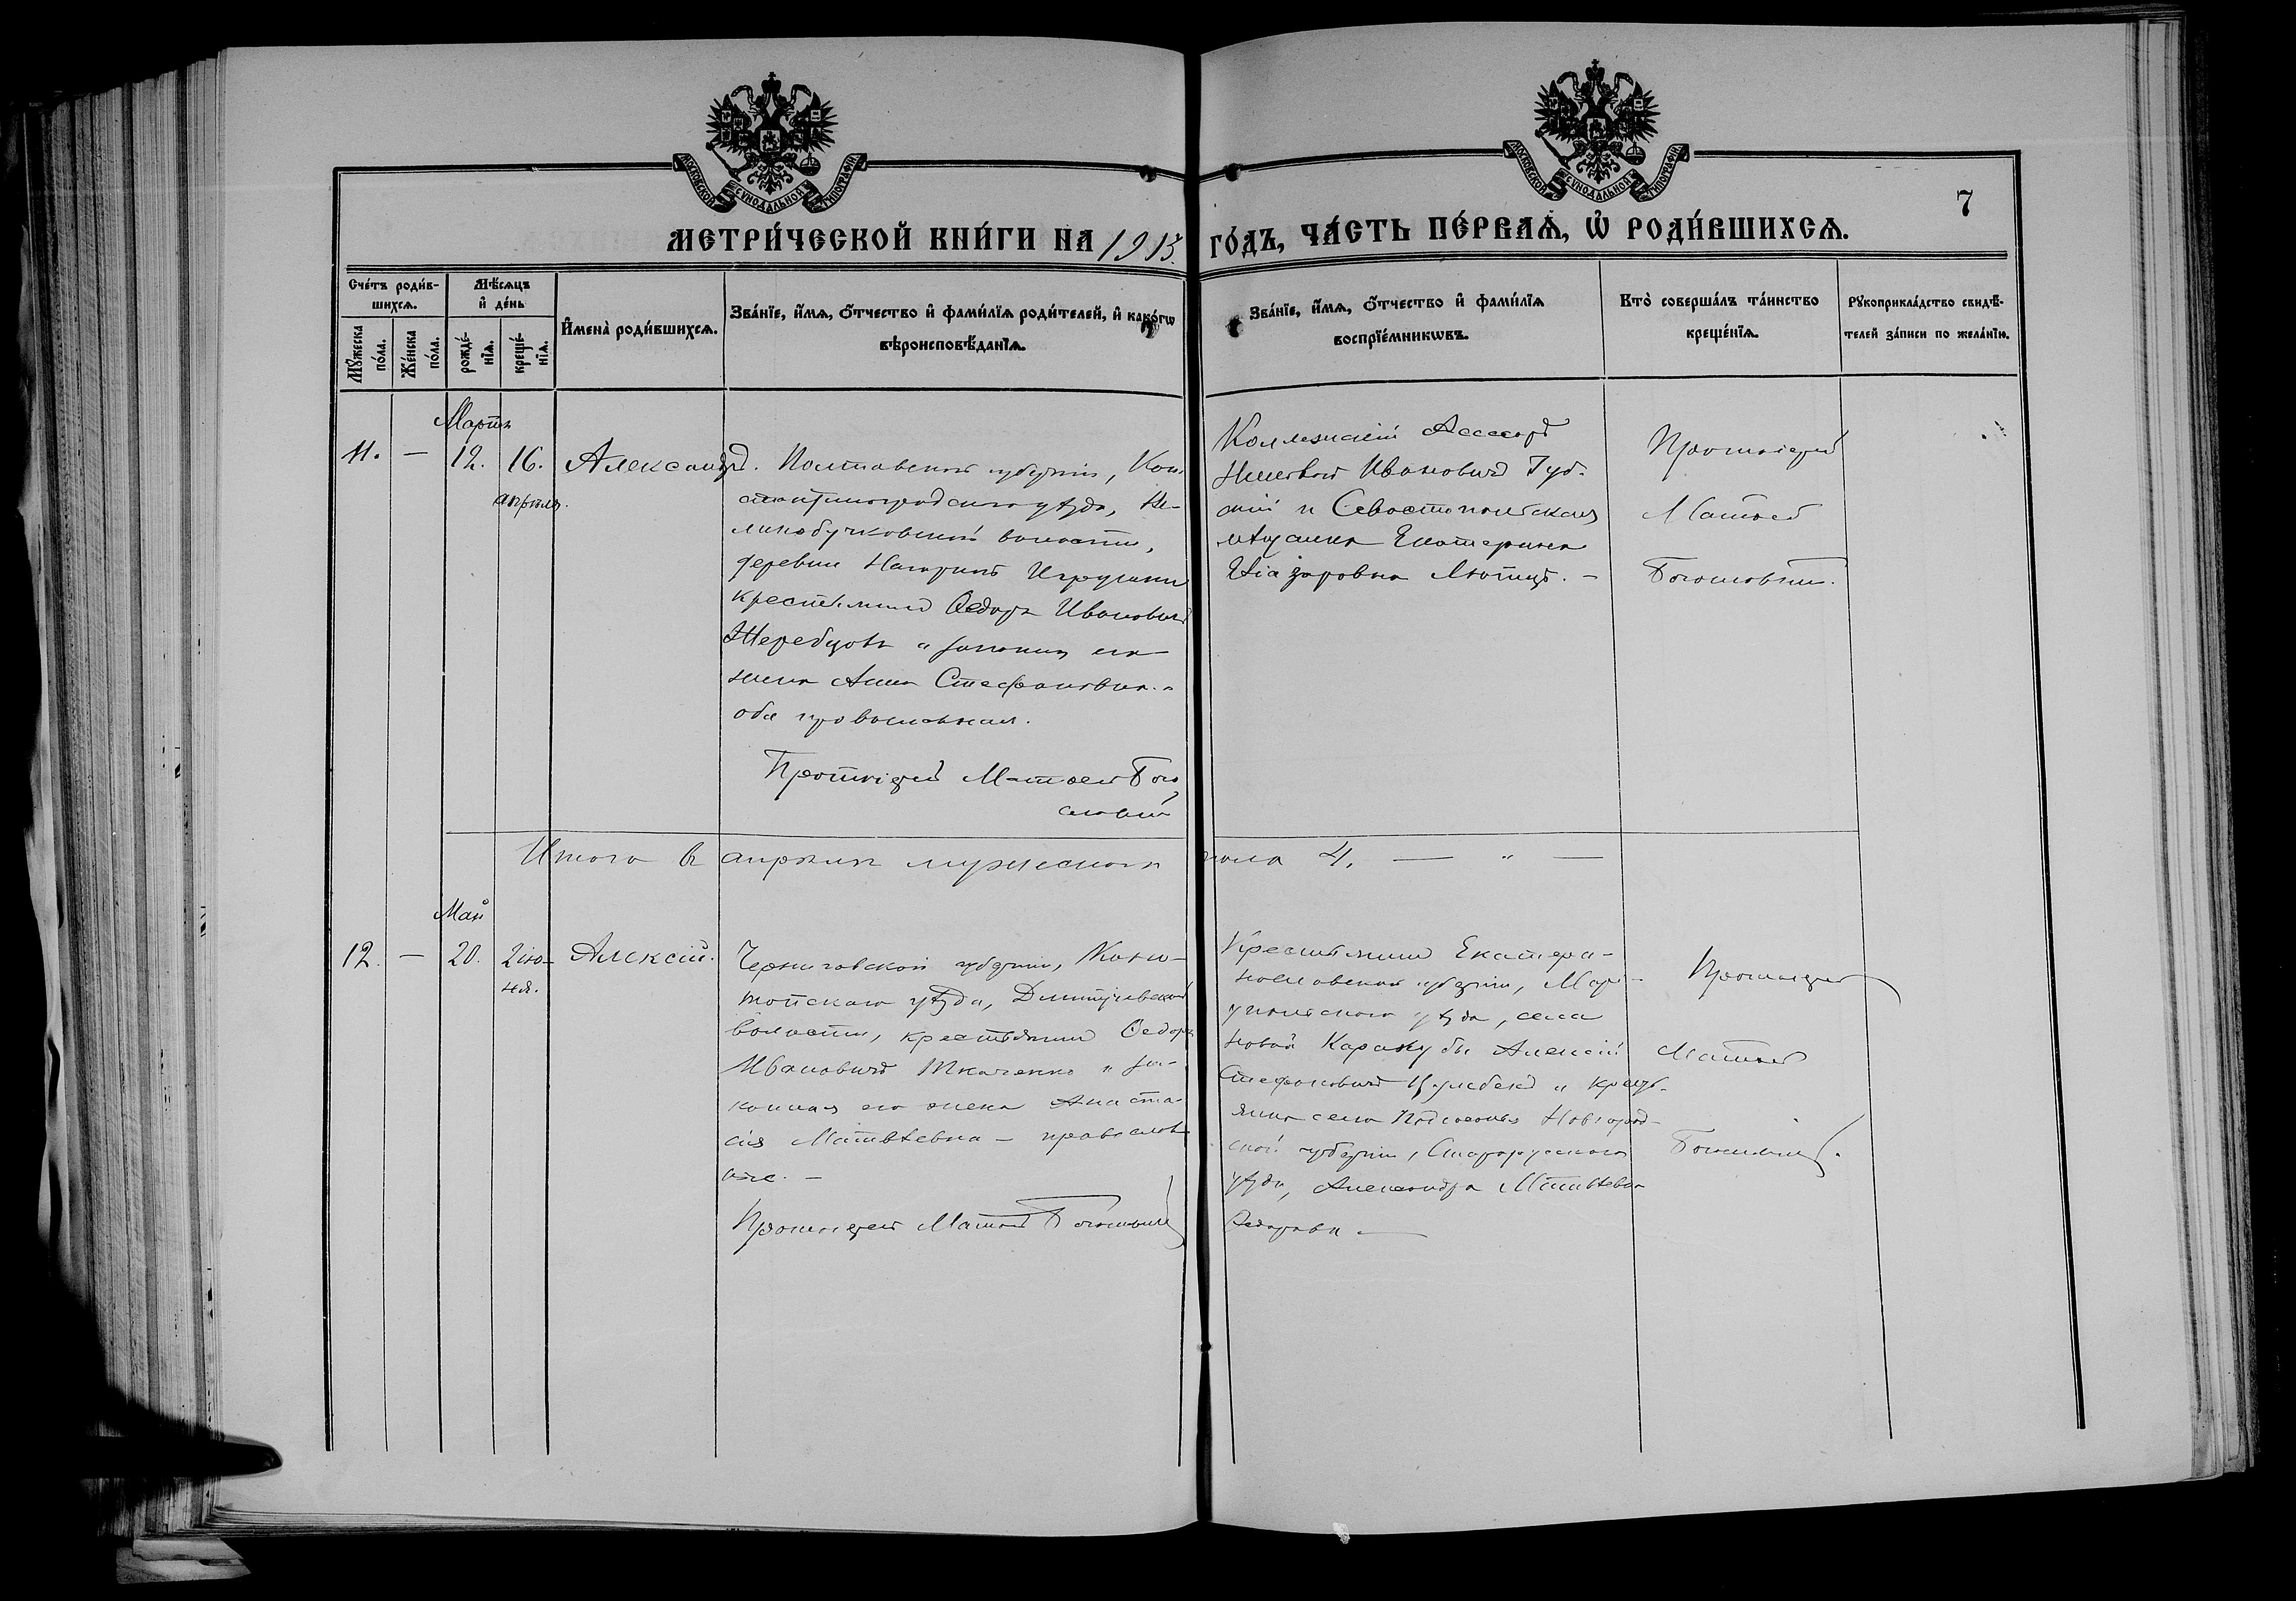 МОСКОВСКОЙ СѴНОДАЛЬНОЙ ТИПОГРАФІИ
МОСКОВСКОЙ СѴНОДАЛЬНОЙ ТИПОГРАФІИ
7
МЕТРИ́ЧЕСКОЙ КНИ́ГИ НА 1913 ГО́ДЪ, ЧА́СТЬ ПЕ́РВАѦ, Ѡ҆ РОДИ́ВШИХСѦ.
Сче́тъ роди́в-
шихсѧ.
Мꙋ́жеска по́ла.
Же́нска по́ла.
Мѣ́сѧцъ
и҆ де́нь
рожде́-
нїѧ.
креще́-
нїѧ.
И҆мена̀ роди́вшихсѧ.
Зва́нїе, и҆́мѧ, ѻ҆́тчество и҆ фами́лїѧ роди́телей, и҆ како́гѡ
вѣроисповѣ́данїѧ.
Зва́нїе, и҆́мѧ, ѻ҆́тчество и҆ фами́лїѧ
воспрїе́мникѡвъ.
Кто̀ соверша́лъ та́инство
креще́нїѧ.
Рꙋкоприкла́дство свидѣ́-
телей за́писи по жела́нїю.
Марта
11. — 12. 16. Александръ.
апрѣля.
Полтавской губерніи, Кон-
стантиноградскаго уѣзда,
волости,
деревни
крестьянинъ Ѳедоръ Ивановичъ
Жеребцовъ и законная его
жена Анна Стефановна,
оба православные.
Протоіерей Матѳей Бого
словскій
Коллежскій Ассесоръ
Ивановичъ
и Севастопольская
мѣщанка Екатерина
Протоіерей
Матѳей
Богословскій.
Итого въ апрѣлѣ мужескаго пола 4. — " —
Май
12. — 20. 2 iю-
ня.
Алексій.
Черниговской губерніи, Коно-
топскаго уѣзда, Дмитріевской
волости, крестьянинъ Ѳедоръ
Ивановичъ Ткаченко и за-
конная его жена Анаста-
сія Матвѣевна — православ
ные. —
Протоіерей Матѳей Богословскій
Крестьянинъ Екатери-
нославской губерніи, Марі-
упольскаго уѣзда, села
Новой Каракубы Алексій
Стефановичъ и кресть-
янка села Новгород-
ской губерніи, Старорусскаго
уѣзда, Александра Матвѣевна
Ѳедорова —
Протоіерей
Матѳей
Богословскій.